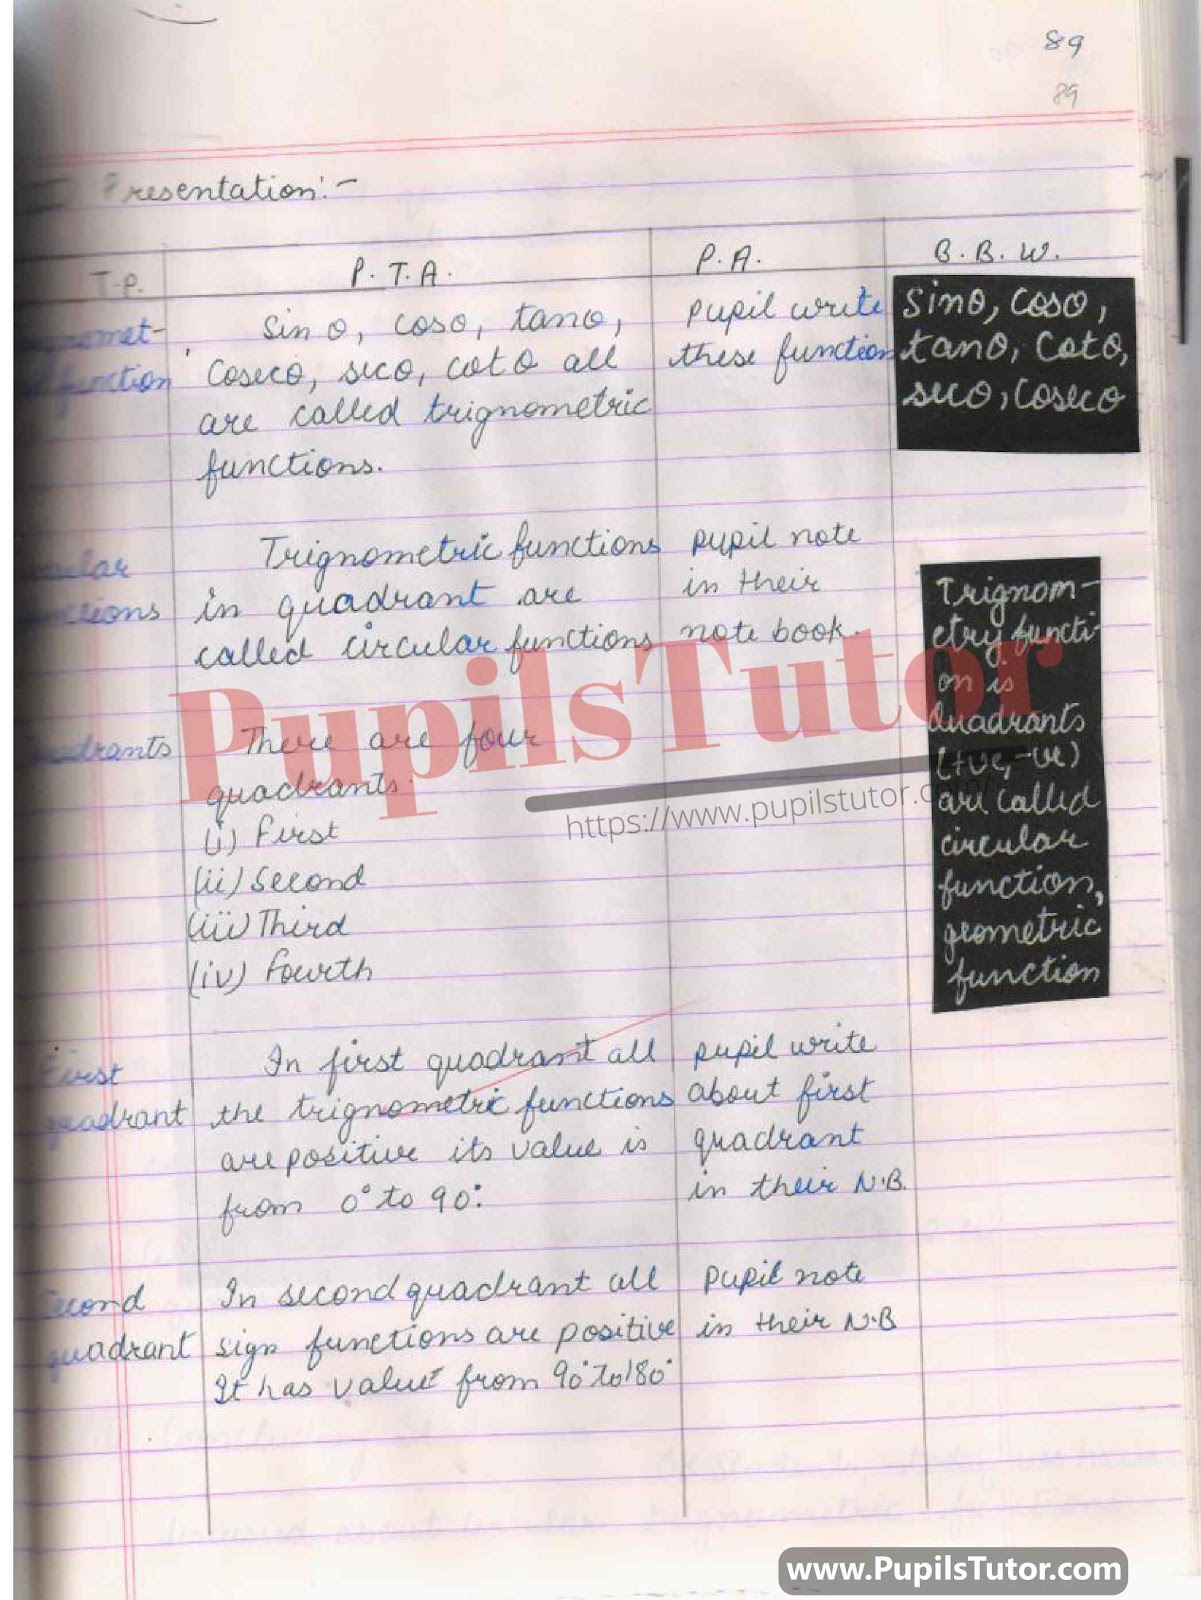 89
89
Presentation:-
T.P.
P.T.A.
P.A.
B.B.W.
function
Sin θ, cosθ, tanθ,
Cosecθ, secθ, cot θ all
are called trignometric
functions.
pupil write
these function
Sinθ, Cosθ,
tanθ, Cotθ,
secθ, Cosecθ
Trignometric functions
in quadrant are
called circular functions
pupil note
in their
note book.
Trignom-
etry functi-
on is
Quadrants
(+ve, -ve)
are called
circular
function,
geometric
function
There are four
quadrants.
(i) First
(ii) Second
(iii) Third
(iv) Fourth
First
quadrant
In first quadrant all
the trignometric functions
are positive its value is
from 0° to 90°.
pupil write
about first
quadrant
in their N.B.
Second
quadrant
In second quadrant all
sign functions are positive
It has value from 90° to 180°
Pupil note
in their N.B
PupilsTutor
https://www.pupilstutor.com/
www.PupilsTutor.com